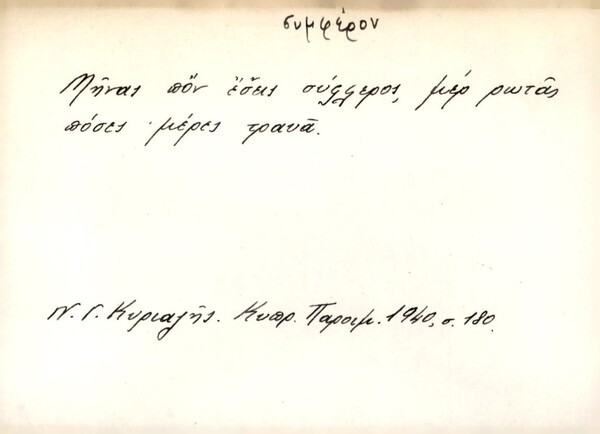 συμφέρον
Μῆνας ποὖν ἔσ̌εις σύφφερος, μέρ ρωτᾷς
πόσες μέρες τραυᾷ.
Ν. Γ. Κυριαζῆς. Κυπρ. Παροιμ. 1940, σ. 180.